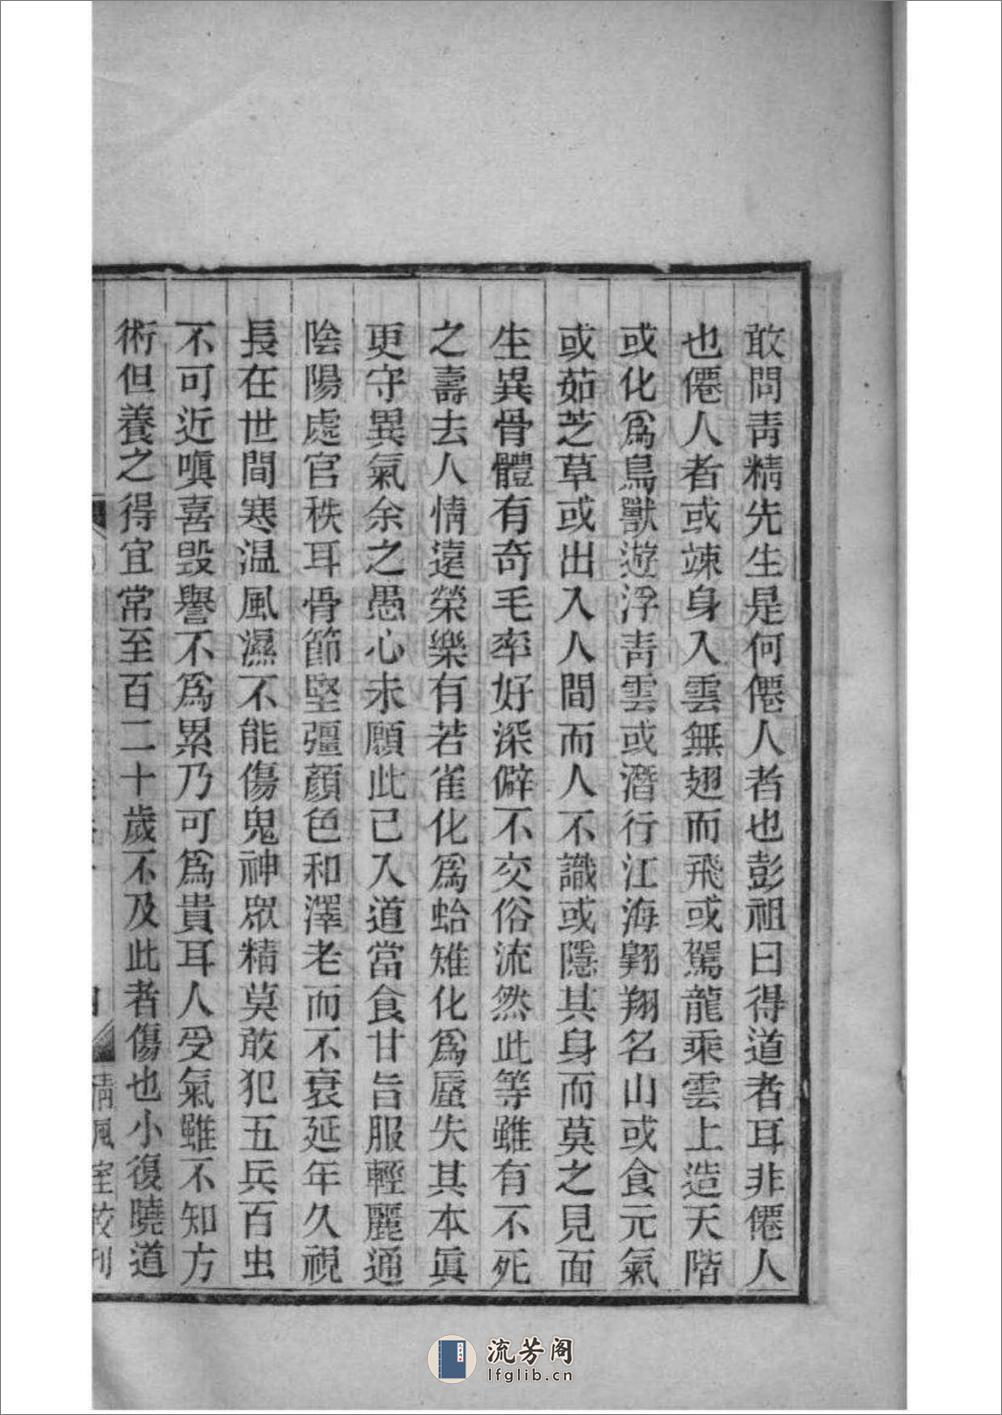 敢問靑精先生是何僊人者也彭祖曰得道者耳非僊人
也僊人者或竦身入雲無翅而飛或駕龍乘雲上造天階
或化爲鳥獸遊浮靑雲或潛行江海翺翔名山或食元氣
或茹芝草或出入人間而人不識或隱其身而莫之見面
生異骨體有奇毛率好深僻不交俗流然此等雖有不死
之壽去人情遠榮樂有若雀化爲蛤雉化爲蜃失其本眞
更守異氣余之愚心未願此已入道當食甘旨服輕麗通
陰陽處官秩耳骨節堅彊顏色和澤老而不衰延年久視
長在世間寒温風濕不能傷鬼神眾精莫敢犯五兵百虫
不可近嗔喜毁譽不爲累乃可爲貴耳人受氣雖不知方
術但養之得宜常至百二十歲不及此者傷也小復曉道
清風室校刋
流芳阁
lfglib.cn